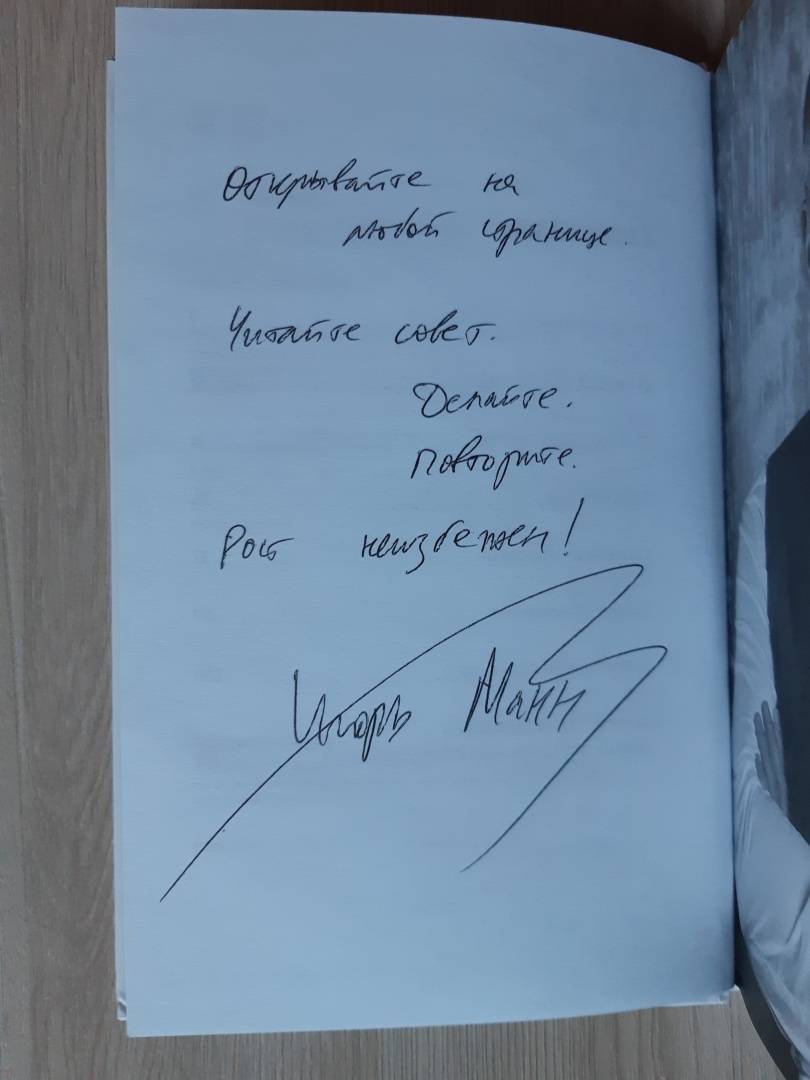 Открывайте на
любой странице.
Читайте совет.
Делайте.
Повторите.
Рост неизбежен!
Игорь Манн